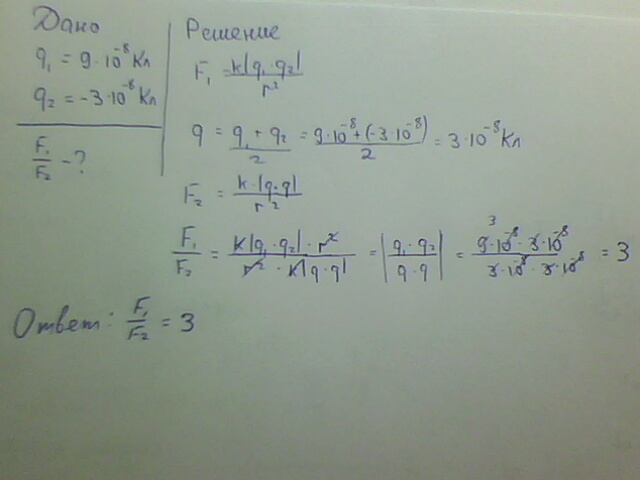 Дано
q₁ = 9·10⁻⁸ Кл
q₂ = -3·10⁻⁸ Кл
F₁/F₂ - ?
Решение
F₁ = k|q₁·q₂|/r²
q = (q₁ + q₂)/2 = (9·10⁻⁸+(-3·10⁻⁸))/2 = 3·10⁻⁸ Кл
F₂ = k·|q·q|/r²
F₁/F₂ = k|q₁·q₂|·r²/r²·k|q·q| = |q₁·q₂/q·q| = 9·10⁻⁸·3·10⁻⁸/3·10⁻⁸·3·10⁻⁸ = 3
Ответ: F₁/F₂ = 3